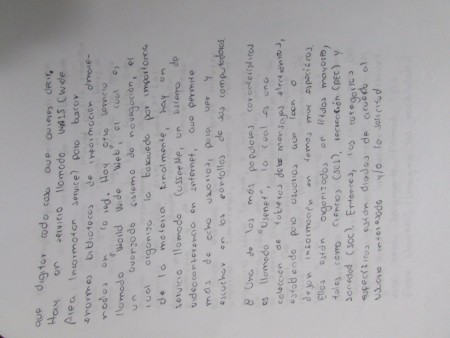 que digitar cada cosa que quieran decir.
Hay un servicio llamado WAIS (Wide
Area Information service) para buscar
enormes bibliotecas de información almace-
nadas en la red. Hay otro servicio
llamado "World Wide Web", el cual es
un avanzado sistema de navegación, el
cual organiza lo buscado por importancia
de la materia. Finalmente, hay un
servicio llamado CUSeeMe, un sistema de
videoconferencia en internet, que permite
más de ocho usuarios, para ver y
escuchar en las pantallas de sus computadores
8 Una de las más populares características
es llamado "Usenet", la cual es una
colección de tableros de mensajes electronicos,
establecido para usuarios que leen o
dejan información en temas muy específicos.
Ellos están organizados en títulos mayores,
tales como ciencias (SCI), recreación (REC) y
sociedad (SOC). Entonces, las categorías
específicas están divididas de acuerdo al
usuario interesado y/o la solicitud